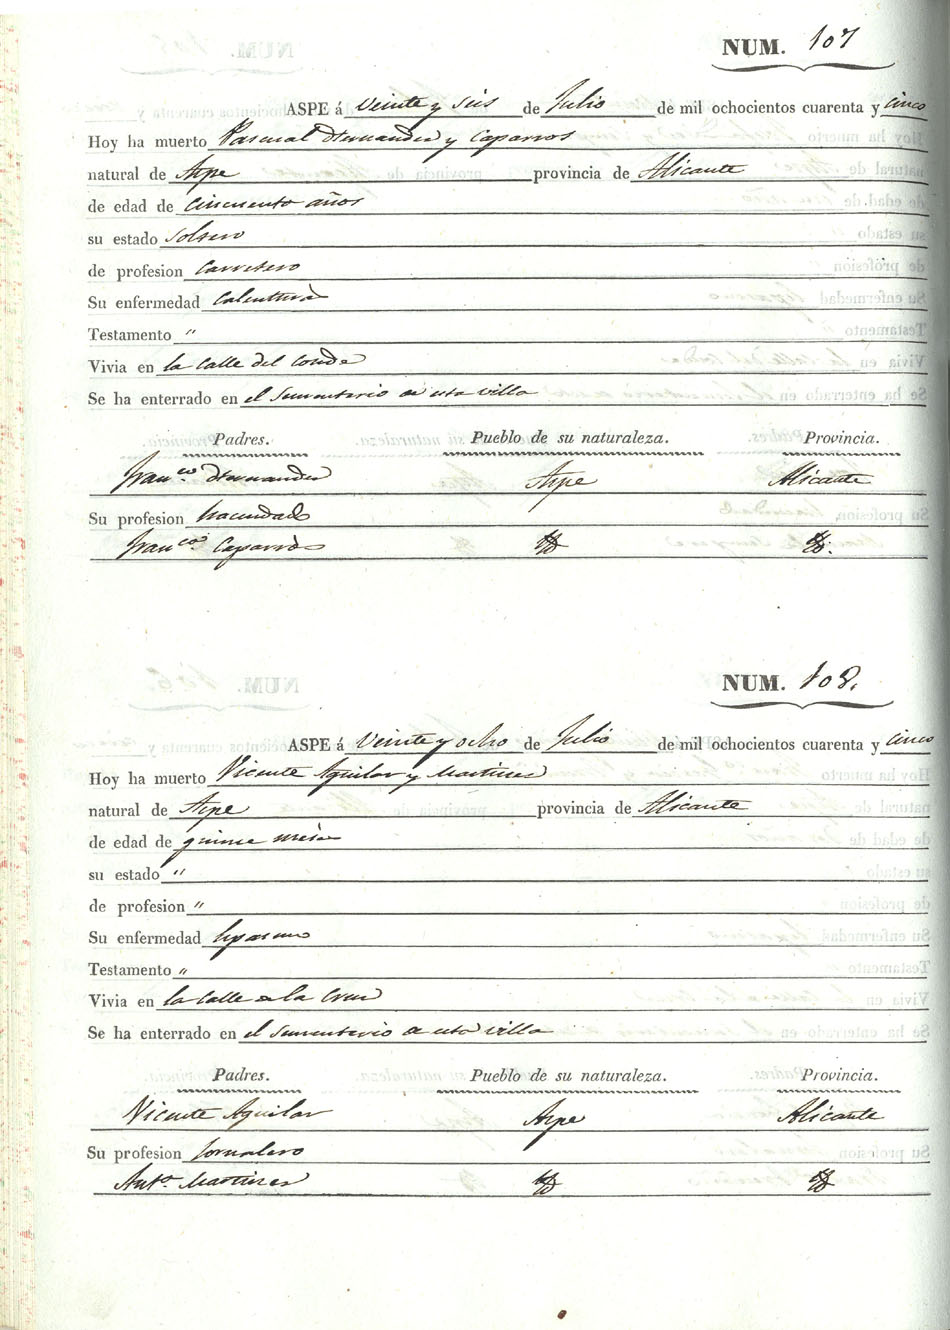 NUM. 107
ASPE á Veinte y seis de Julio de mil ochocientos cuarenta y cinco
Hoy ha muerto Pascual Hernandez y Caparros
natural de Aspe provincia de Alicante
de edad de Cincuenta años
su estado Soltero
de profesion Carretero
Su enfermedad Calentura
Testamento "
Vivia en la Calle del Conde
Se ha enterrado en el Sementerio de esta villa
Padres. Pueblo de su naturaleza. Provincia.
Franco. Hernandez Aspe Alicante
Su profesion hacendado
Franca. Caparros
NUM. 108.
ASPE á Veinte y ocho de Julio de mil ochocientos cuarenta y cinco
Hoy ha muerto Vicente Aguilar y Martinez
natural de Aspe provincia de Alicante
de edad de quince meses
su estado "
de profesion "
Su enfermedad
Testamento "
Vivia en la Calle de la Cruz
Se ha enterrado en el Sementerio de esta villa
Padres. Pueblo de su naturaleza. Provincia.
Vicente Aguilar Aspe Alicante
Su profesion Jornalero
Anta. Martinez